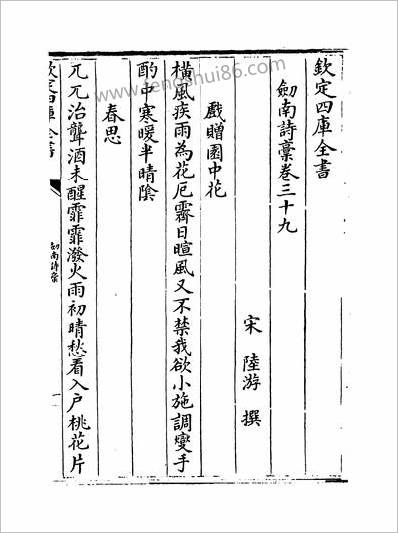 欽定四庫全書
劒南詩藁卷三十九
宋 陸游 撰
戲贈園中花
橫風疾雨為花厄霽日暄風又不禁我欲小施調燮手
酌中寒暖半晴隂
春思
兀兀治聾酒未醒霏霏潑火雨初晴愁看入户桃花片
欽定四庫全書
劒南詩藁
一
www.fengshui86.com